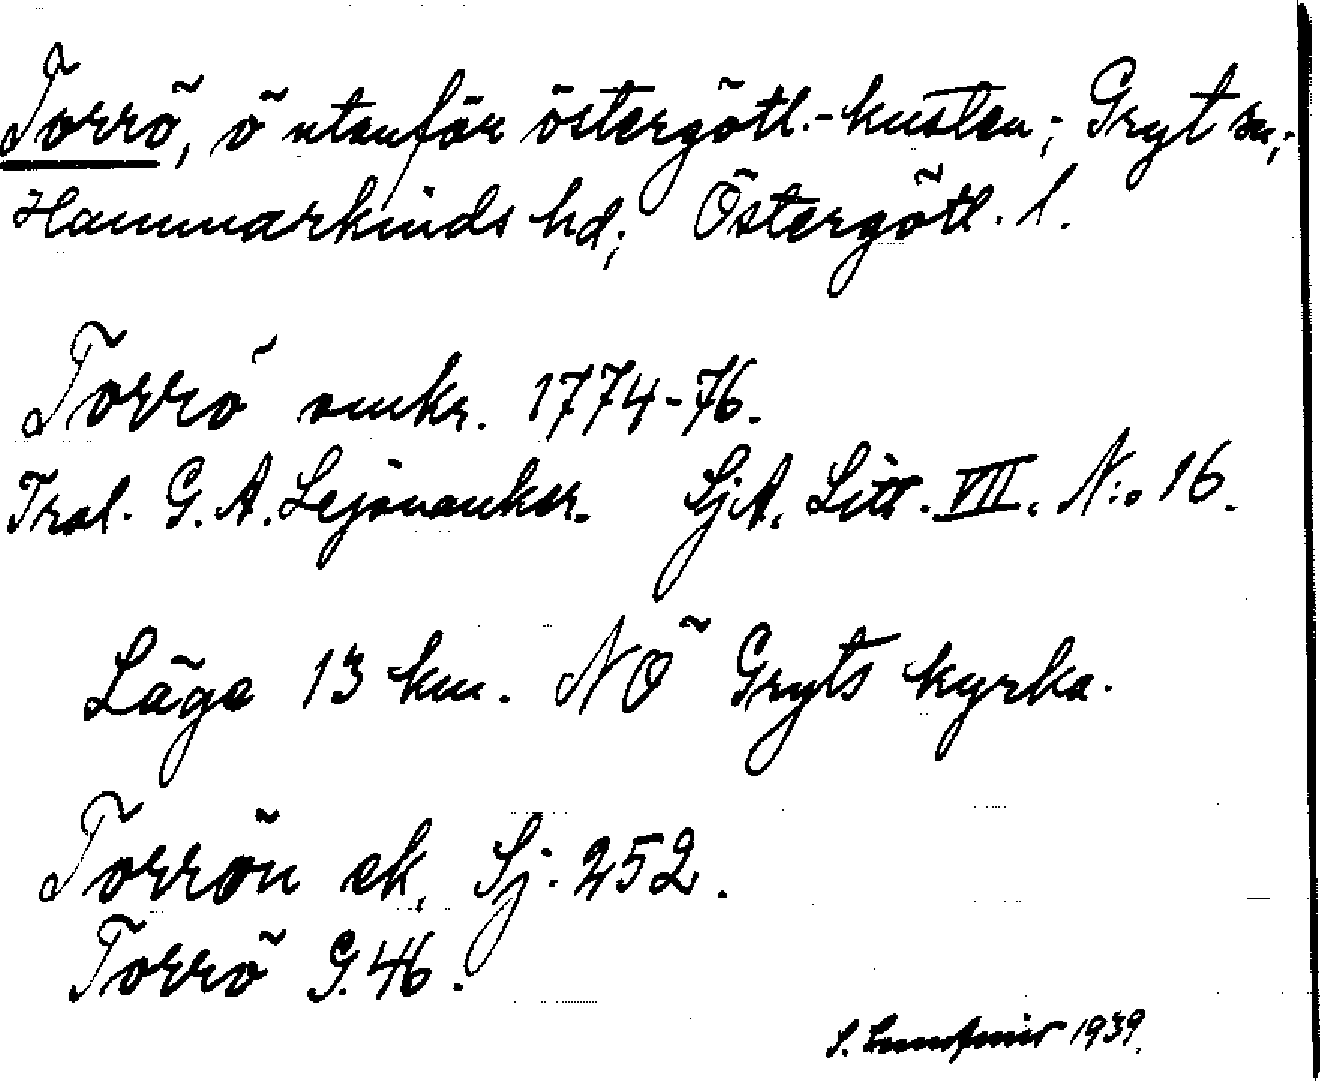 Torrö, ö utanför östergötl.-kusten; Gryt sn,
Hammarkinds hd; Östergötl. l.
Torrö omkr. 1774-76.
Tral. G. A. Lejonanker. Sj.A. Litt. VII. N:o 16.
Läge 13 km. NÖ Gryts kyrka.
Torrön ek. Sj. 252.
Torrö G. 46.
S. 1939.